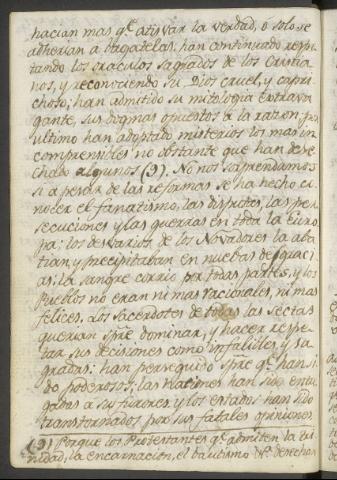 hacian mas qe. atisvar la verdad, o solo se
adherian a bagatelas, han continuado respe
tando los oraculos sagrados de los Cristia
nos, y reconociendo su Dios cruel, y capri
choso; han admitido su mitologia extrava
gante, sus dogmas opuestos a la razon, por
ultimo han adoptado misterios los mas in
comprensibles no obstante que han dese
chado algunos (9). No nos sorprendamos
si a pesar de las reformas se ha hecho co
nocer el fanatismo, las disputas, las per
secuciones y las guerras en toda la Euro
pa; los desvarios de los Novadores la aba
tian, y precipitaban en nuebas desgraci
as; la sangre corrio por todas partes, y los
Pueblos no eran ni mas racionales, ni mas
felices. Los Sacerdotes de todas las sectas
querian spre. dominar, y hacer respe
tar sus decisiones como infalibles, y sa
gradas; han perseguido spre. qe. han si
do poderosos; las Naciones han sido entre
gadas a sus furores, y los estados han sido
transtornados por sus fatales opiniones.
(9) Porque los Protestantes qe. admiten la tri
nidad, la encarnacion, el bautismo &a. desechan